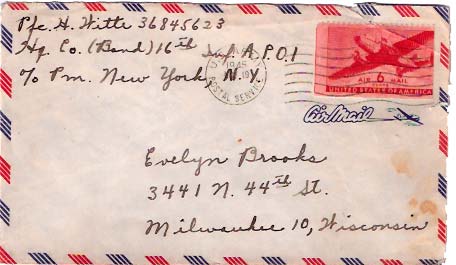 Pfc. H. Witte 36845623
Hq. Co. (Band) 16th Inf. A.P.O. 1
c/o Pm. New York, N.Y.
1945
POSTAL SERVICE
AIR 6 MAIL
UNITED STATES OF AMERICA
Air Mail
Evelyn Brooks
3441 N. 44th St.
Milwaukee 10, Wisconsin